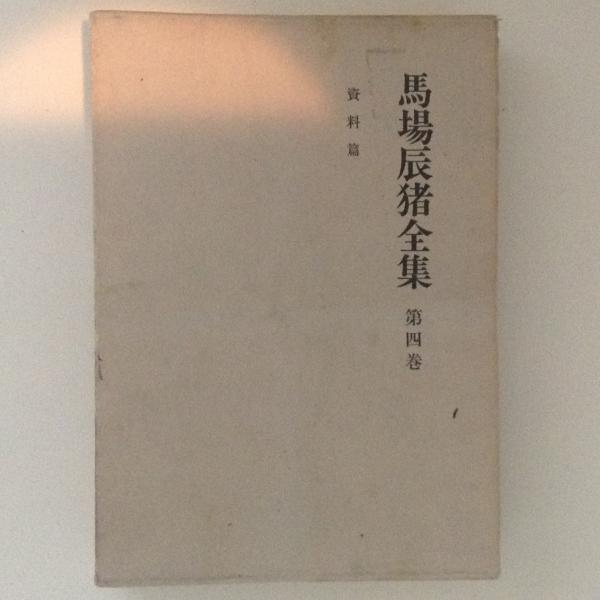 馬場辰猪全集 第四巻
資料篇